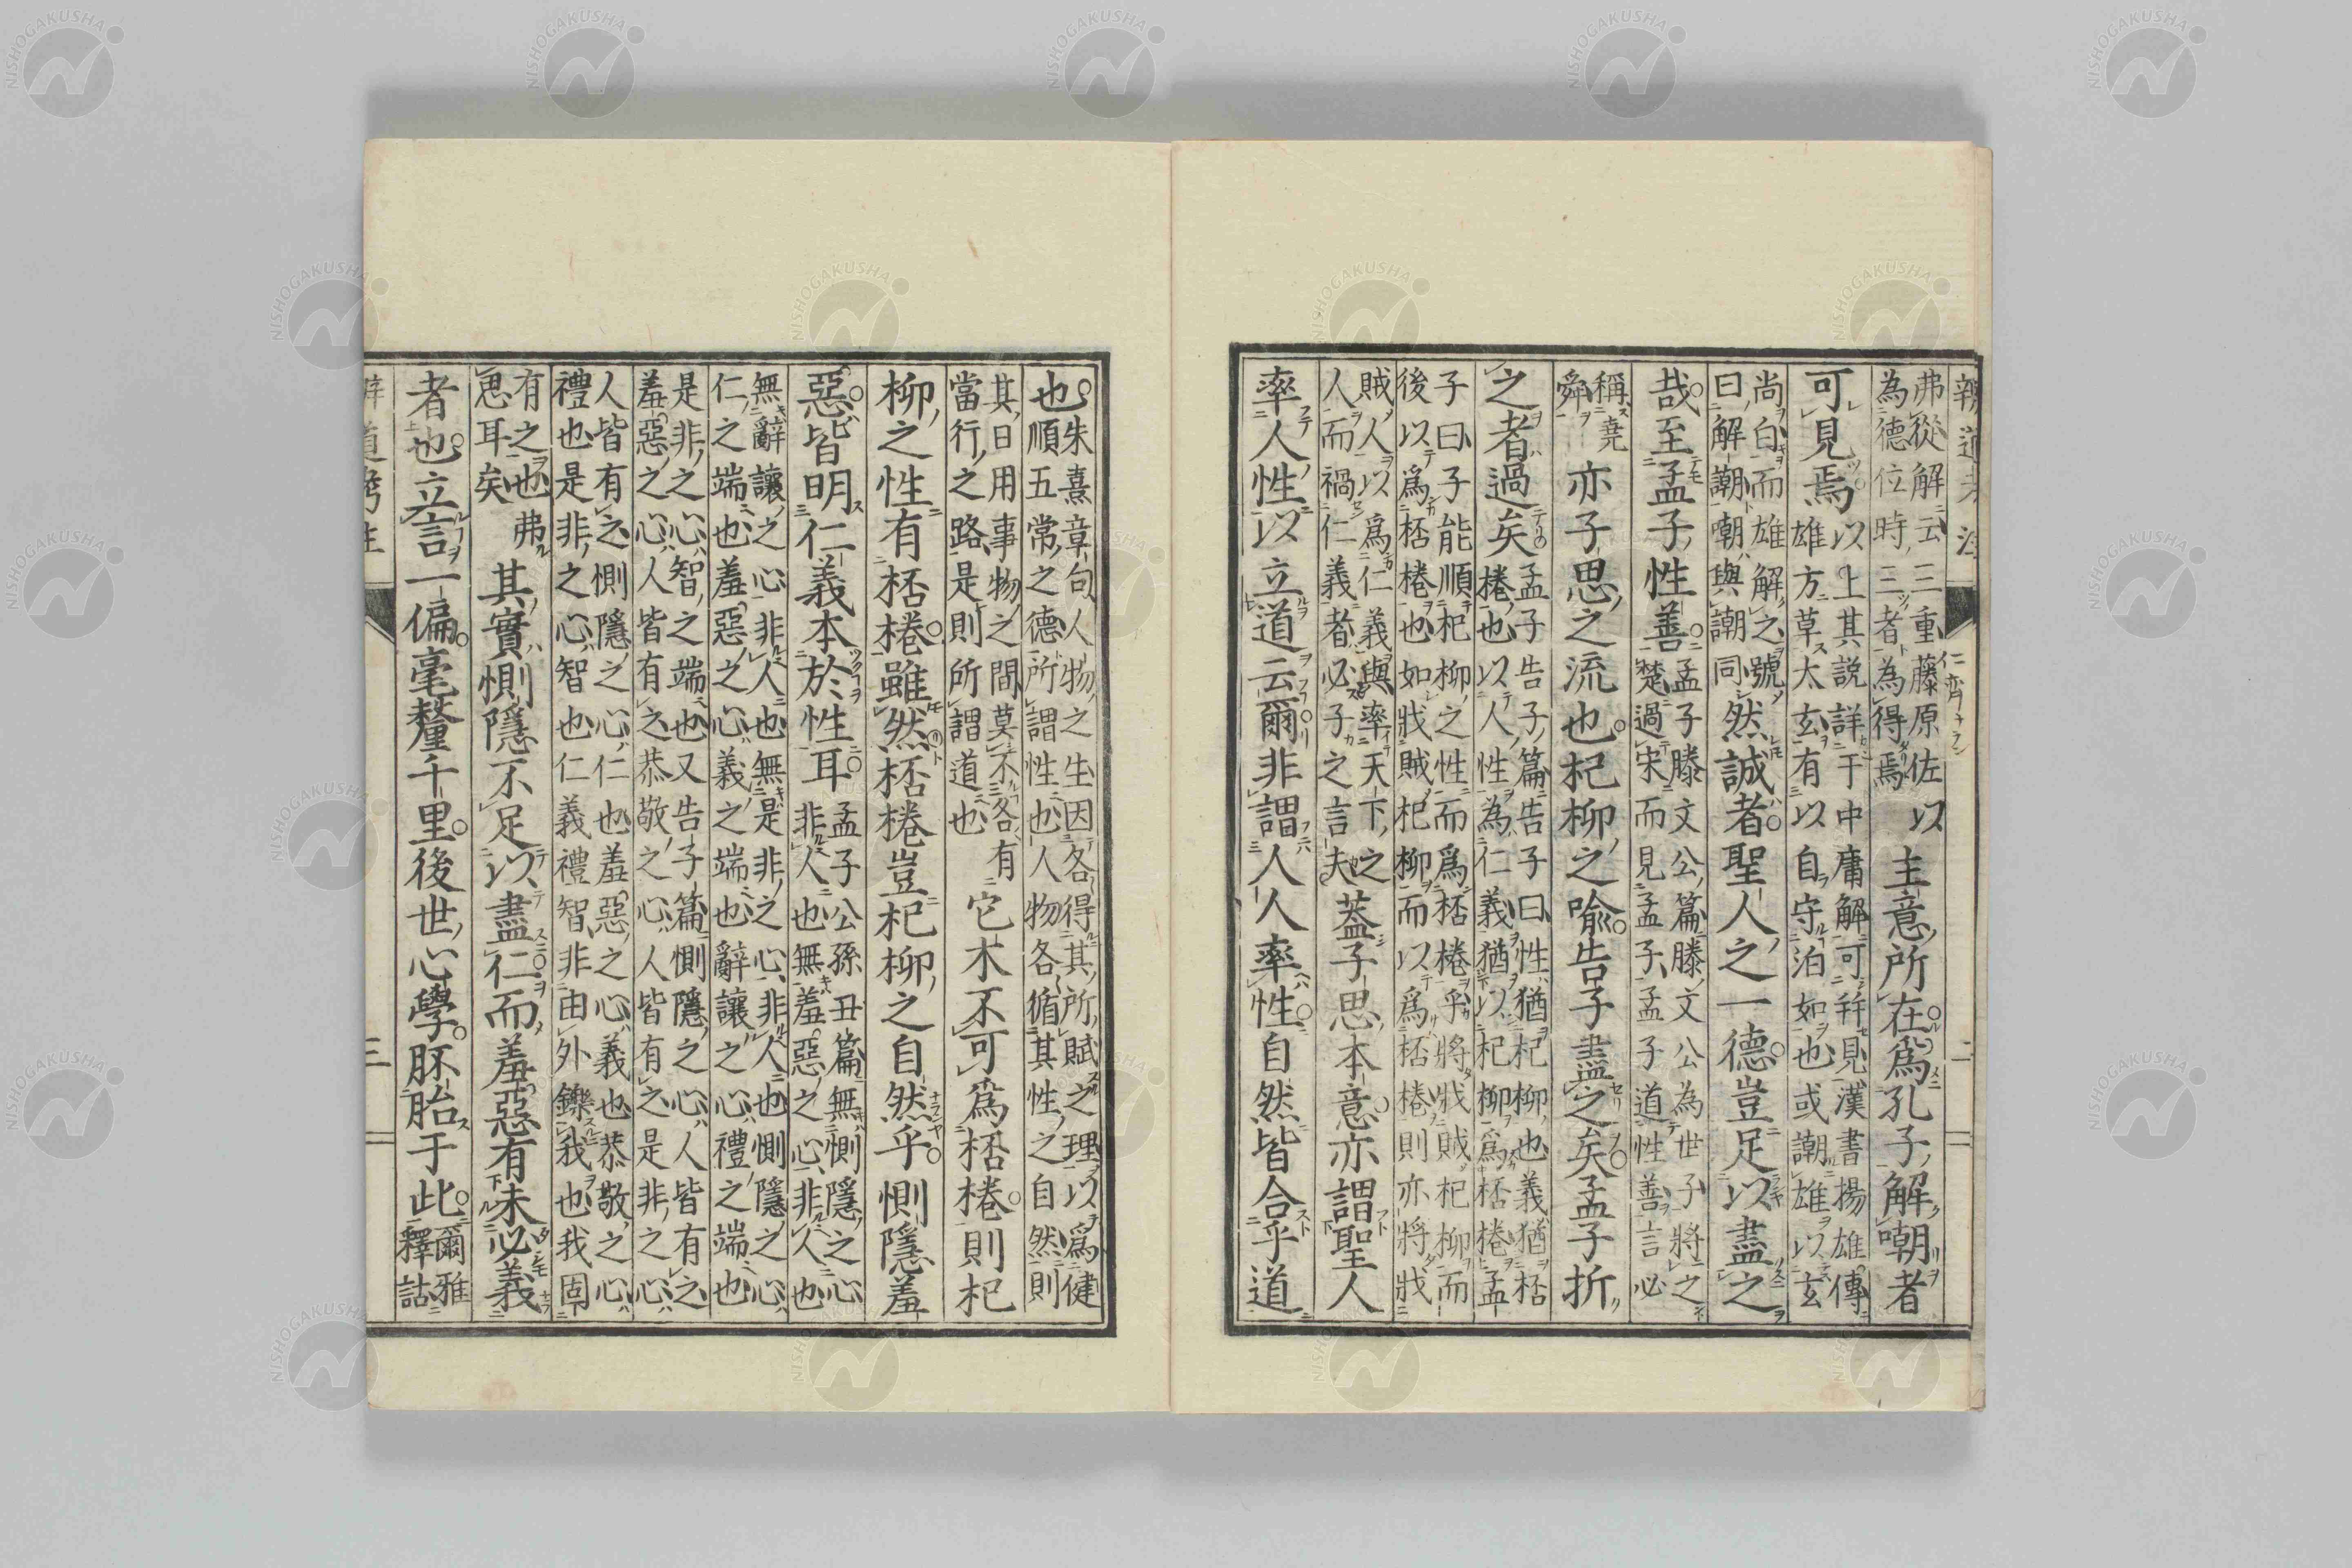 辨道考注 二
弗從解云三重藤原佐
為德位時三者為得焉
仁齋ナラン
以主意所在爲孔子解嘲者
可見焉
以上其説詳于中庸解可幷見漢書揚雄傳
雄方草太玄有以自守泊如也或謿雄以玄
尚白而雄解之號
曰解謿嘲與謿同
然誠者聖人之一德豈足以盡之
哉至孟子性善
孟子滕文公篇滕文公為世子將之
楚過宋而見孟子孟子道性善言必
稱堯
舜
亦子思之流也杞柳之喩告子盡之矣孟子折
之者過矣
孟子告子篇告子曰性猶杞柳也義猶桮
棬也以人性為仁義猶以杞柳爲桮棬孟
子曰子能順杞柳之性而爲桮棬乎將戕賊杞柳而
後以爲桮棬也如戕賊杞柳而以爲桮棬則亦將戕
賊人以爲仁義與率天下之
人而禍仁義者必子之言夫
蓋子思本意亦謂聖人
率人性以立道云爾非謂人人率性自然皆合乎道
也
朱熹章句人物之生因各得其所賦之理以爲健
順五常之德所謂性也人物各循其性之自然則
其日用事物之間莫不各有
當行之路是則所謂道也
它木不可爲桮棬則杞
柳之性有桮棬雖然桮棬豈杞柳之自然乎惻隱羞
惡皆明仁義本於性耳
孟子公孫丑篇無惻隱之心
非人也無羞惡之心非人也
無辭讓之心非人也無是非之心非人也惻隱之心
仁之端也羞惡之心義之端也辭讓之心禮之端也
是非之心智之端也又告子篇惻隱之心人皆有之
羞惡之心人皆有之恭敬之心人皆有之是非之心
人皆有之惻隱之心仁也羞惡之心義也恭敬之心
禮也是非之心智也仁義禮智非由外鑠我也我固
有之也弗
思耳矣
其實惻隱不足以盡仁而羞惡有未必義
者也立言一偏毫釐千里後世心學胚胎于此
爾雅
釋詁
辨道考注 三